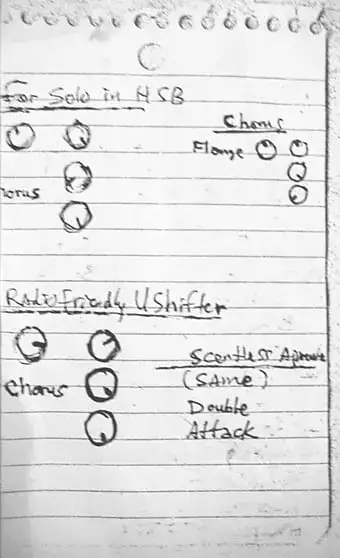 For Solo in HSB
Chorus
Flange
horus
Radio Friendly U Shifter
Scentless Apprentice
Chorus
(SAme)
Double
Attack